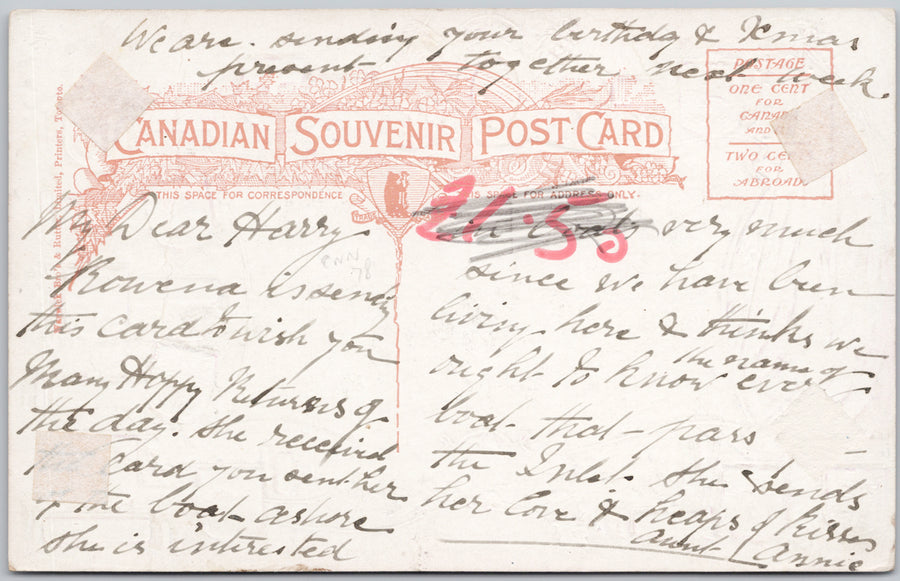 We are sending your birthday & Xmas
present together next week
CANADIAN SOUVENIR POST CARD
POSTAGE
ONE CENT
FOR
AND
TWO
FOR
ABROAD.
THIS SPACE FOR CORRESPONDENCE
SPACE FOR ADDRESS ONLY.
Printers, Toronto.
21.50
PNN
78
My Dear Harry
Rowena is sending
this card to wish you
Many Happy Returns of
the day. She received
Card you sent her
of the boat ashore
she is interested
in boats very much
since we have been
living here & thinks we
ought to know the name of ever
boat that pass
the Inlet. She sends
her love & heaps of kisses
Aunt Annie